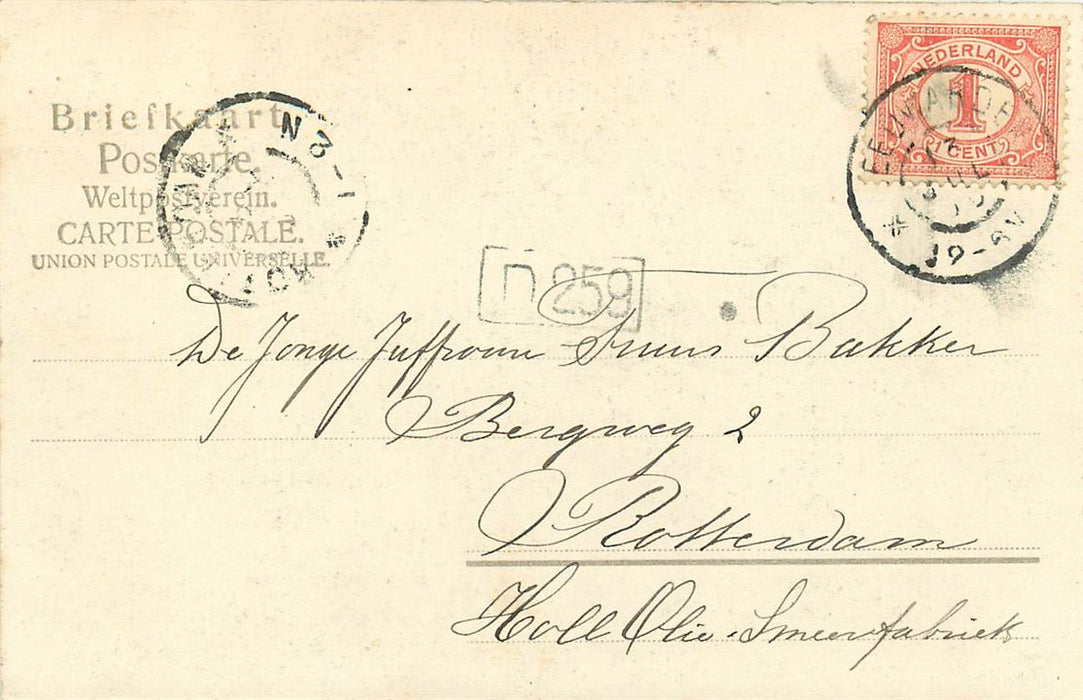 NEDERLAND
1
1 CENT
12-6V
Briefkaart
Postkarte.
Weltpostverein.
CARTE POSTALE.
UNION POSTALE UNIVERSELLE.
1-2N
ROTTERDAM
n 259
De Jonge Juffrouw Bakker
Bergweg 2
Rotterdam
Holl Olie-Smeerfabriek